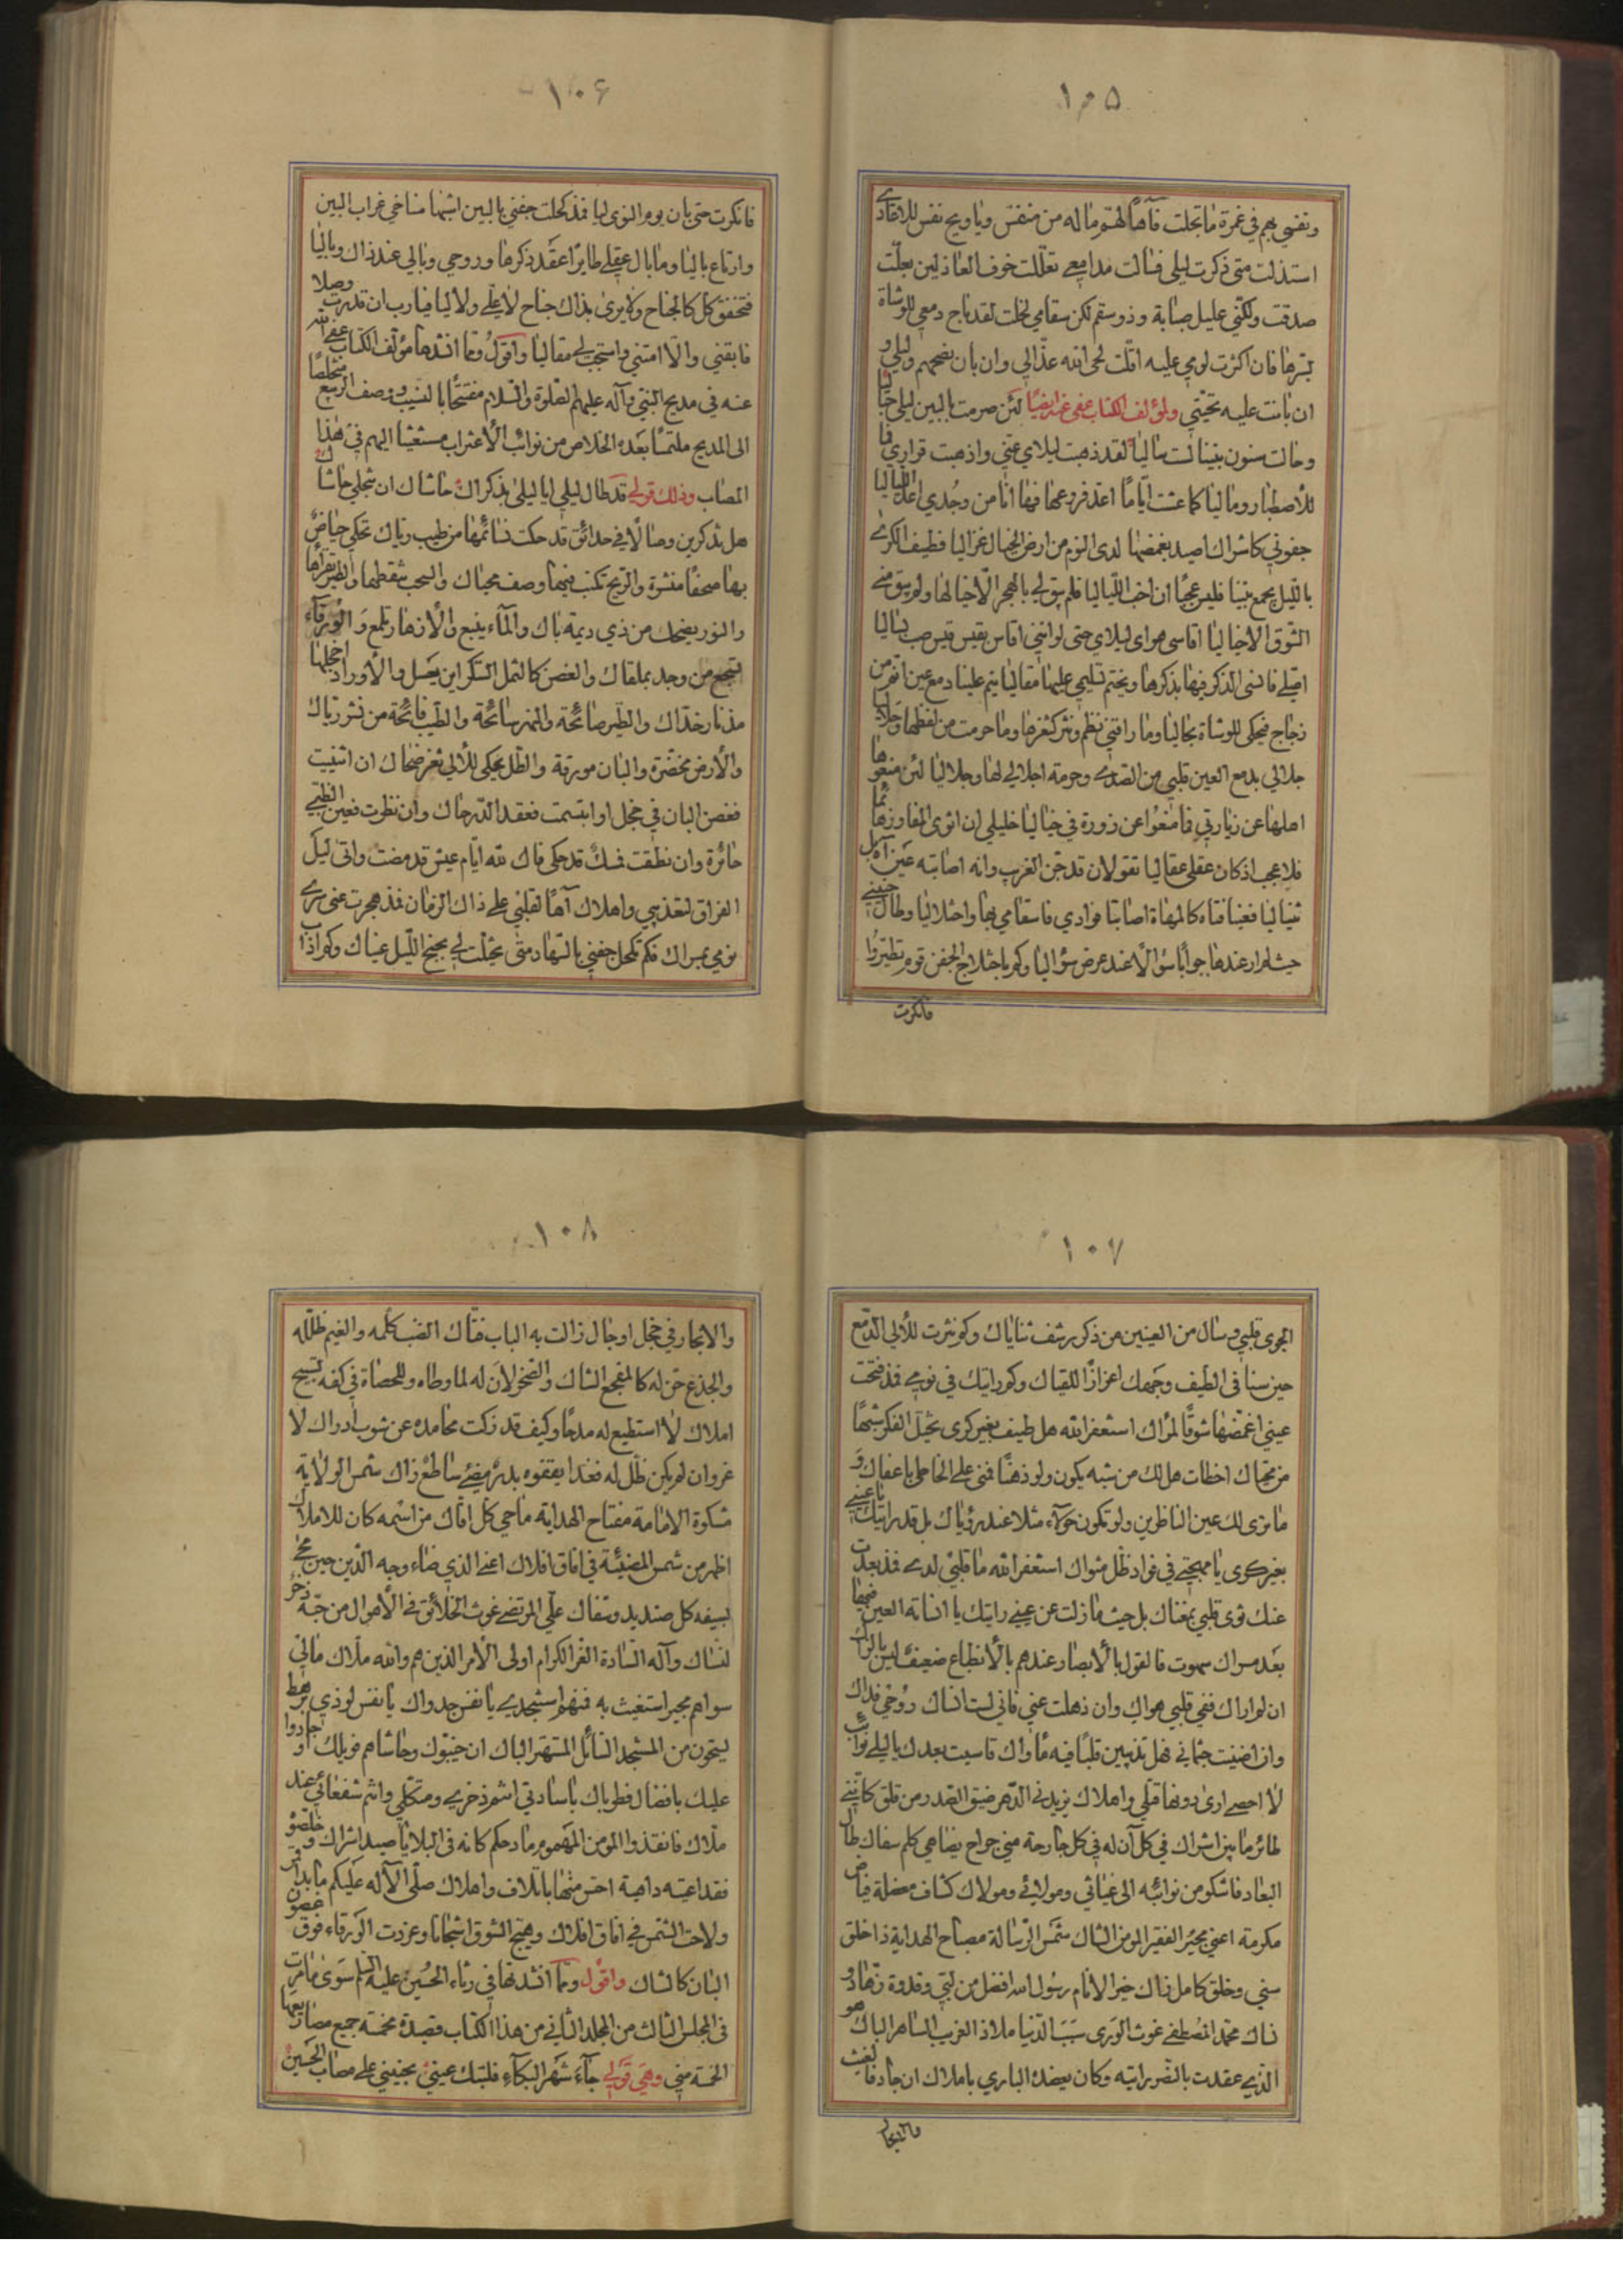 ١٠٥
ونفسي بهم في غمرة ما تجلت فآها لهم ماله من منفس ويا ويح نفس للاعادي
استذلت متى ذكرت ليلى فسالت مدامعي تعللت خوف العاذلين بعلت
صدقت ولكني عليل صبابة وذو سقم لكن سقامي نحلت لقد باح دمعي للوشاة
بسرها فان اكثرت لومي عليه اقلت لحى الله عذالي وان بان نصحهم وليلى و
ان بانت عليه تحيتي ولمؤلف الكتاب عفى عنه ايضا لئن صرمت بالبين ليلى حباليا
وحالت سنون بيننا لست ساليا لقد ذهبت ليلاي عني واذهبت قراري فا
للاصطبار وماليا كما عشت اياما اعد فروعها فها انا من وجدي اعد اللياليا
جفوني كاشراك اصيد بغمضها لدى النوم من ارض الخيال غزاليا فطيف الكرى
بالليل يجمع بيننا فليس عجبا ان احب اللياليا فلم يبق لي بالهجر الا خيالها ولم يبق مني
الشوق الا خياليا اقاسي هوى ليلاي حتى لو انني اقاس بقيس قيس صب
اصلي فانسى الذكر فيها بذكرها ويختم تسليمي عليها مقاليا ينم علينا دمع عين
زجاج فيحكي للوشاة بحاليا وما راقني نظم ونثر كثغرها وما حرمت من لفظها
جلالي بدمع العين قلبي من الصدى وحرمة اجلالي لها وجلاليا لئن منعوها
اهلها عن زيارتي فما منعوا عن زورة في خياليا خليلي ان انوى المفاوز
فلا عجب اذ كان عقلي عقاليا تقولان قد جن الغريب وانه اصابته عين
ثنياليا فعينا فتاه كالمهاة اصابتا فوادي فاسقامي بها واختلاليا وطال حنيني
حيث لم ار عندها جوابا سؤالا عند عرض سؤاليا وكم باختلاج الجفن قوم تطيروا
فانكرت
١٠٦
فانكرت حتى بان يوم النوى ليا فمذ كحلت جفني بالبين اثمها مناخي غراب البين
وارتاع باليا وما بال عقلي طائرا عقد ذكرها وروحي وبالي عند ذاك وباليا
فتخفق كل كالجناح ولا يرى بذاك جناح لا علي ولا ليا فيارب ان قدرت وصلا
فابقني والا امتني واستجب لي مقاليا واقول ومما انشدها مؤلف الكتاب عفى الله
عنه في مديح النبي وآله عليهم الصلوة والسلام مفتتحا بالنسيب ووصف الربيع متخلصا
الى المديح ملتمسا بعده الخلاص من نوائب الاغتراب مستغيثا اليهم في هذا
المصاب وذلك قولي قد طال ليلي ايا ليلى بذكراك حاشاك ان تبخلي حاشاك
هل تذكرين وصالا في حدائق قد حكت نسائمها من طيب رياك تحكي حياض
بها صحفا منشرة والريح تكتب فيها وصف محياك والسحب تنقطها والطير تقرأها
والنور يضحك من ذي ديمة باك والماء ينبع والازهار تلمع والورقاء
تسجع من وجد بملقاك والغصن كالثمل السكران يعسل والاوراد اخجلها
مذ نار خداك والطير صائحة والنهر سائحة والطيب فائحة من نشر رياك
والارض مخضرة والبان مورقة والطل يحكي لئالي ثغر ضحاك ان انثنيت
فغصن البان في خجل او ابتسمت فعقد الدر حاك وان نظرت فعين الظبي
حائرة وان نطقت فمسك قد حكى فاك لله ايام عيش قد مضت واتى ليل
الفراق لتعذيبي واهلاك آها لقلبي على ذاك الزمان فمذ هجرت عني سرى
نومي بمسراك فكم تكحل جفني بالسهاد متى تخيلت لي بجنح الليل عيناك وكم اذاب
١٠٧
الجوى قلبي وسال من العينين من ذكر رشف ثناياك وكم نثرت لئالي الدمع
حين سنا في الطيف وجهك اعزازا للقياك وكم رايتك في نومي فمذ فتحت
عيني اغمضها شوقا لمراك استغفر الله هل طيف بغير كرى تخيل الفكر شبها
من محياك اخطات هالك من شبه يكون ولو ذهنا فمني على الخاطي باعفاك و
ما نرى لك عين الناظرين ولم تكون حوآء مثلا عند رؤياك بل قد رايتك يا عيني
بغير كرى يا مهجتي في فواد ظل مثواك استغفر الله ما قلبي لدي فمذ بعدت
عنك ثوى قلبي بمغناك بل حيث ما زلت عن عيني رايتك يا انسانة العين
بعد مسراك سموت فالقول بالابصار عندهم بالانطباع ضعيف
ان لم اراك ففي قلبي هواك وان ذهلت عني فاني لست انساك روحي فداك
وان اضنيت جثماني فهل تذيبين قلبا فيه ماواك قاسيت بعدك يا ليلى نوائب
لا احصي ارى دونها قتلي واهلاك يزيدني الدهر ضيق الصدر من قلق كانني
طائر ما بين اشراك في كل آن له في كل جارحة مني جراح يضاهي كلم سفاك طال
البعاد فاشكو من نوائبه الى غياثي ومولائي ومولاك كشاف معضلة فياض
مكرمة اعني مجير الفقير المؤمن الشاك شمس الرسالة مصباح الهداية ذا خلق
سني وخلق كامل ذاك خير الانام رسول الله افضل من لبى وقدوة زهاد و
نساك محمد المصطفى غوث الورى سبب الدنيا ملاذ الغريب الساهر الباك هو
الذي عقدت بالنصر رايته وكان يعضد الباري باملاك ان جاد فالغيث
والابحار
١٠٨
والابحار في خجل او جال زالت به الباب فتاك الضب كلمه والغيم ظلله
والجذع حن له كالمفجع الشاك والصخر لان له لما وطاه وللحصاة في كفه تسبيح
املاك لا استطيع له مدحا وكيف قد زكت محامده عن شوب ادراك لا
غرو ان لم يكن ظل له فغدا يقفوه بدر مضيء ساطع زاك شمس الولاية
مشكوة الامامة مفتاح الهداية ماحي كل افاك من اسمه كان للاملاك
اظهر من شمس المضيئة في افاق افلاك اعني الذي ضاء وجه الدين حين محى
بسيفه كل صنديد وسفاك علي المرتضى غوث الخلائق في الاهوال من حبه ذخر
لنساك وآله السادة الغر الكرام اولى الامر الذين هم والله ملاك مالي
سواهم مجير استغيث به فمنهم استجدي يا نفس جدواك يا نفس لوذي برهط
يستحون من المستجد السائل المستهتر الباك ان خيبوك وحاشاهم فويلك او جادوا
عليك بافضال فطوباك يا سادتي انتم ذخري ومتكلي وانتم شفعائي عند
ملاك فانقذوا المؤمن المهموم مادحكم كانه في البلايا صيد اشراك وخلصوه
فقد اعيته داهية اخنى منتها باتلاف واهلاك صلى الاله عليكم ما بدا قمر
ولاحت الشمس في افاق افلاك وهيج الشوق اشجانا وغردت الورقاء فوق غصون
البان كالشاك واقول ومما انشدتها في رثاء الحسين عليه السلم سوى ما مرت
في المجلس الثالث من المجلد الثاني من هذا الكتاب قصيدة مخمسة جميع مصاريعها
الخمسة مني وهي قولي جآء شهر البكآء فلتبك عيني بجنيني على مصاب الحسين